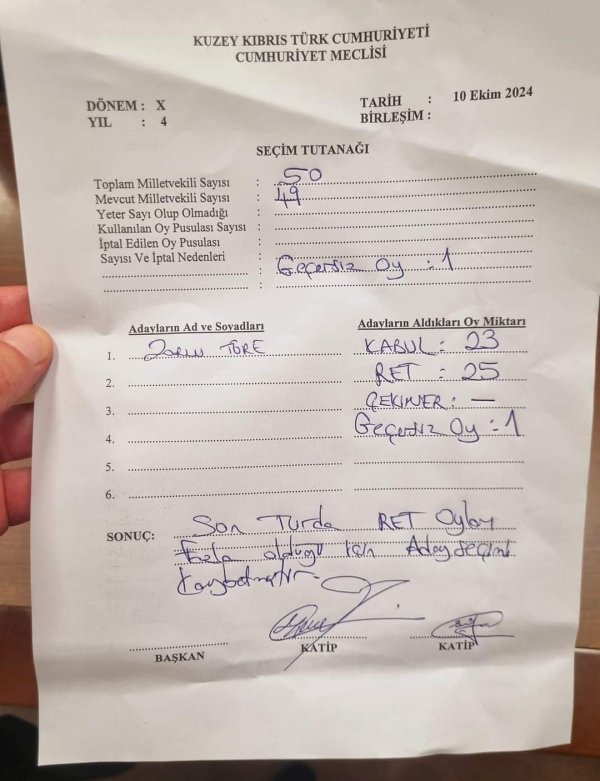 KUZEY KIBRIS TÜRK CUMHURİYETİ
CUMHURİYET MECLİSİ
DÖNEM : X
TARİH : 10 Ekim 2024
YIL : 4
BİRLEŞİM :
SEÇİM TUTANAĞI
Toplam Milletvekili Sayısı : 50
Mevcut Milletvekili Sayısı : 49
Yeter Sayı Olup Olmadığı :
Kullanılan Oy Pusulası Sayısı :
İptal Edilen Oy Pusulası :
Sayısı Ve İptal Nedenleri :
: Geçersiz Oy : 1
:
Adayların Ad ve Soyadları
Adayların Aldıkları Oy Miktarı
1. Zorlu TÖRE
KABUL : 23
2.
RET : 25
3.
ÇEKİMSER : —
4.
Geçersiz Oy : 1
5.
6.
SONUÇ: Son Turda RET Oyları
Fazla olduğu için Aday seçimi
Kaybetmiştir.
BAŞKAN
KATİP
KATİP